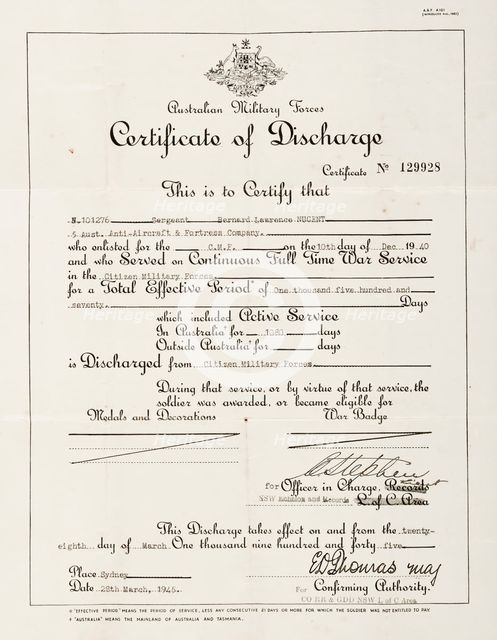 A.A.F. A101
Australian Military Forces
Certificate of Discharge
Certificate No 129928
This is to Certify that
N.101276 Sergeant Bernard Lawrence NUGENT
5 Aust. Anti-Aircraft & Fortress Company.
who enlisted for the C.M.F. on the 10th day of Dec 1940
and who Served on Continuous Full Time War Service
in the Citizen Military Forces
for a Total Effective Period* of One thousand five hundred and
seventy Days
which included Active Service
In Australia† for 1080 days
Outside Australia† for days
is Discharged from Citizen Military Forces
During that service, or by virtue of that service, the
soldier was awarded, or became eligible for
Medals and Decorations War Badge
for Officer in Charge, Records
NSW Echelon and Records L. of C. Area
This Discharge takes effect on and from the twenty-
eighth day of March One thousand nine hundred and forty five
Place Sydney
Date 28th March, 1945. For Confirming Authority.
CO RR & GDD NSW L of C Area
* "EFFECTIVE PERIOD" MEANS THE PERIOD OF SERVICE, LESS ANY CONSECUTIVE 21 DAYS OR MORE FOR WHICH THE SOLDIER WAS NOT ENTITLED TO PAY.
† "AUSTRALIA" MEANS THE MAINLAND OF AUSTRALIA AND TASMANIA.
Heritage